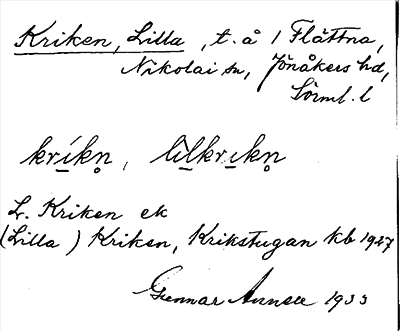 Kriken, Lilla, t. å / Flättna,
Nikolai sn, Jönåkers hd,
Sörml. l
kríkn̥, lìlkrıkn̥
L. Kriken ek
(Lilla) Kriken, Krikstugan kb 1927
Gunnar 1933